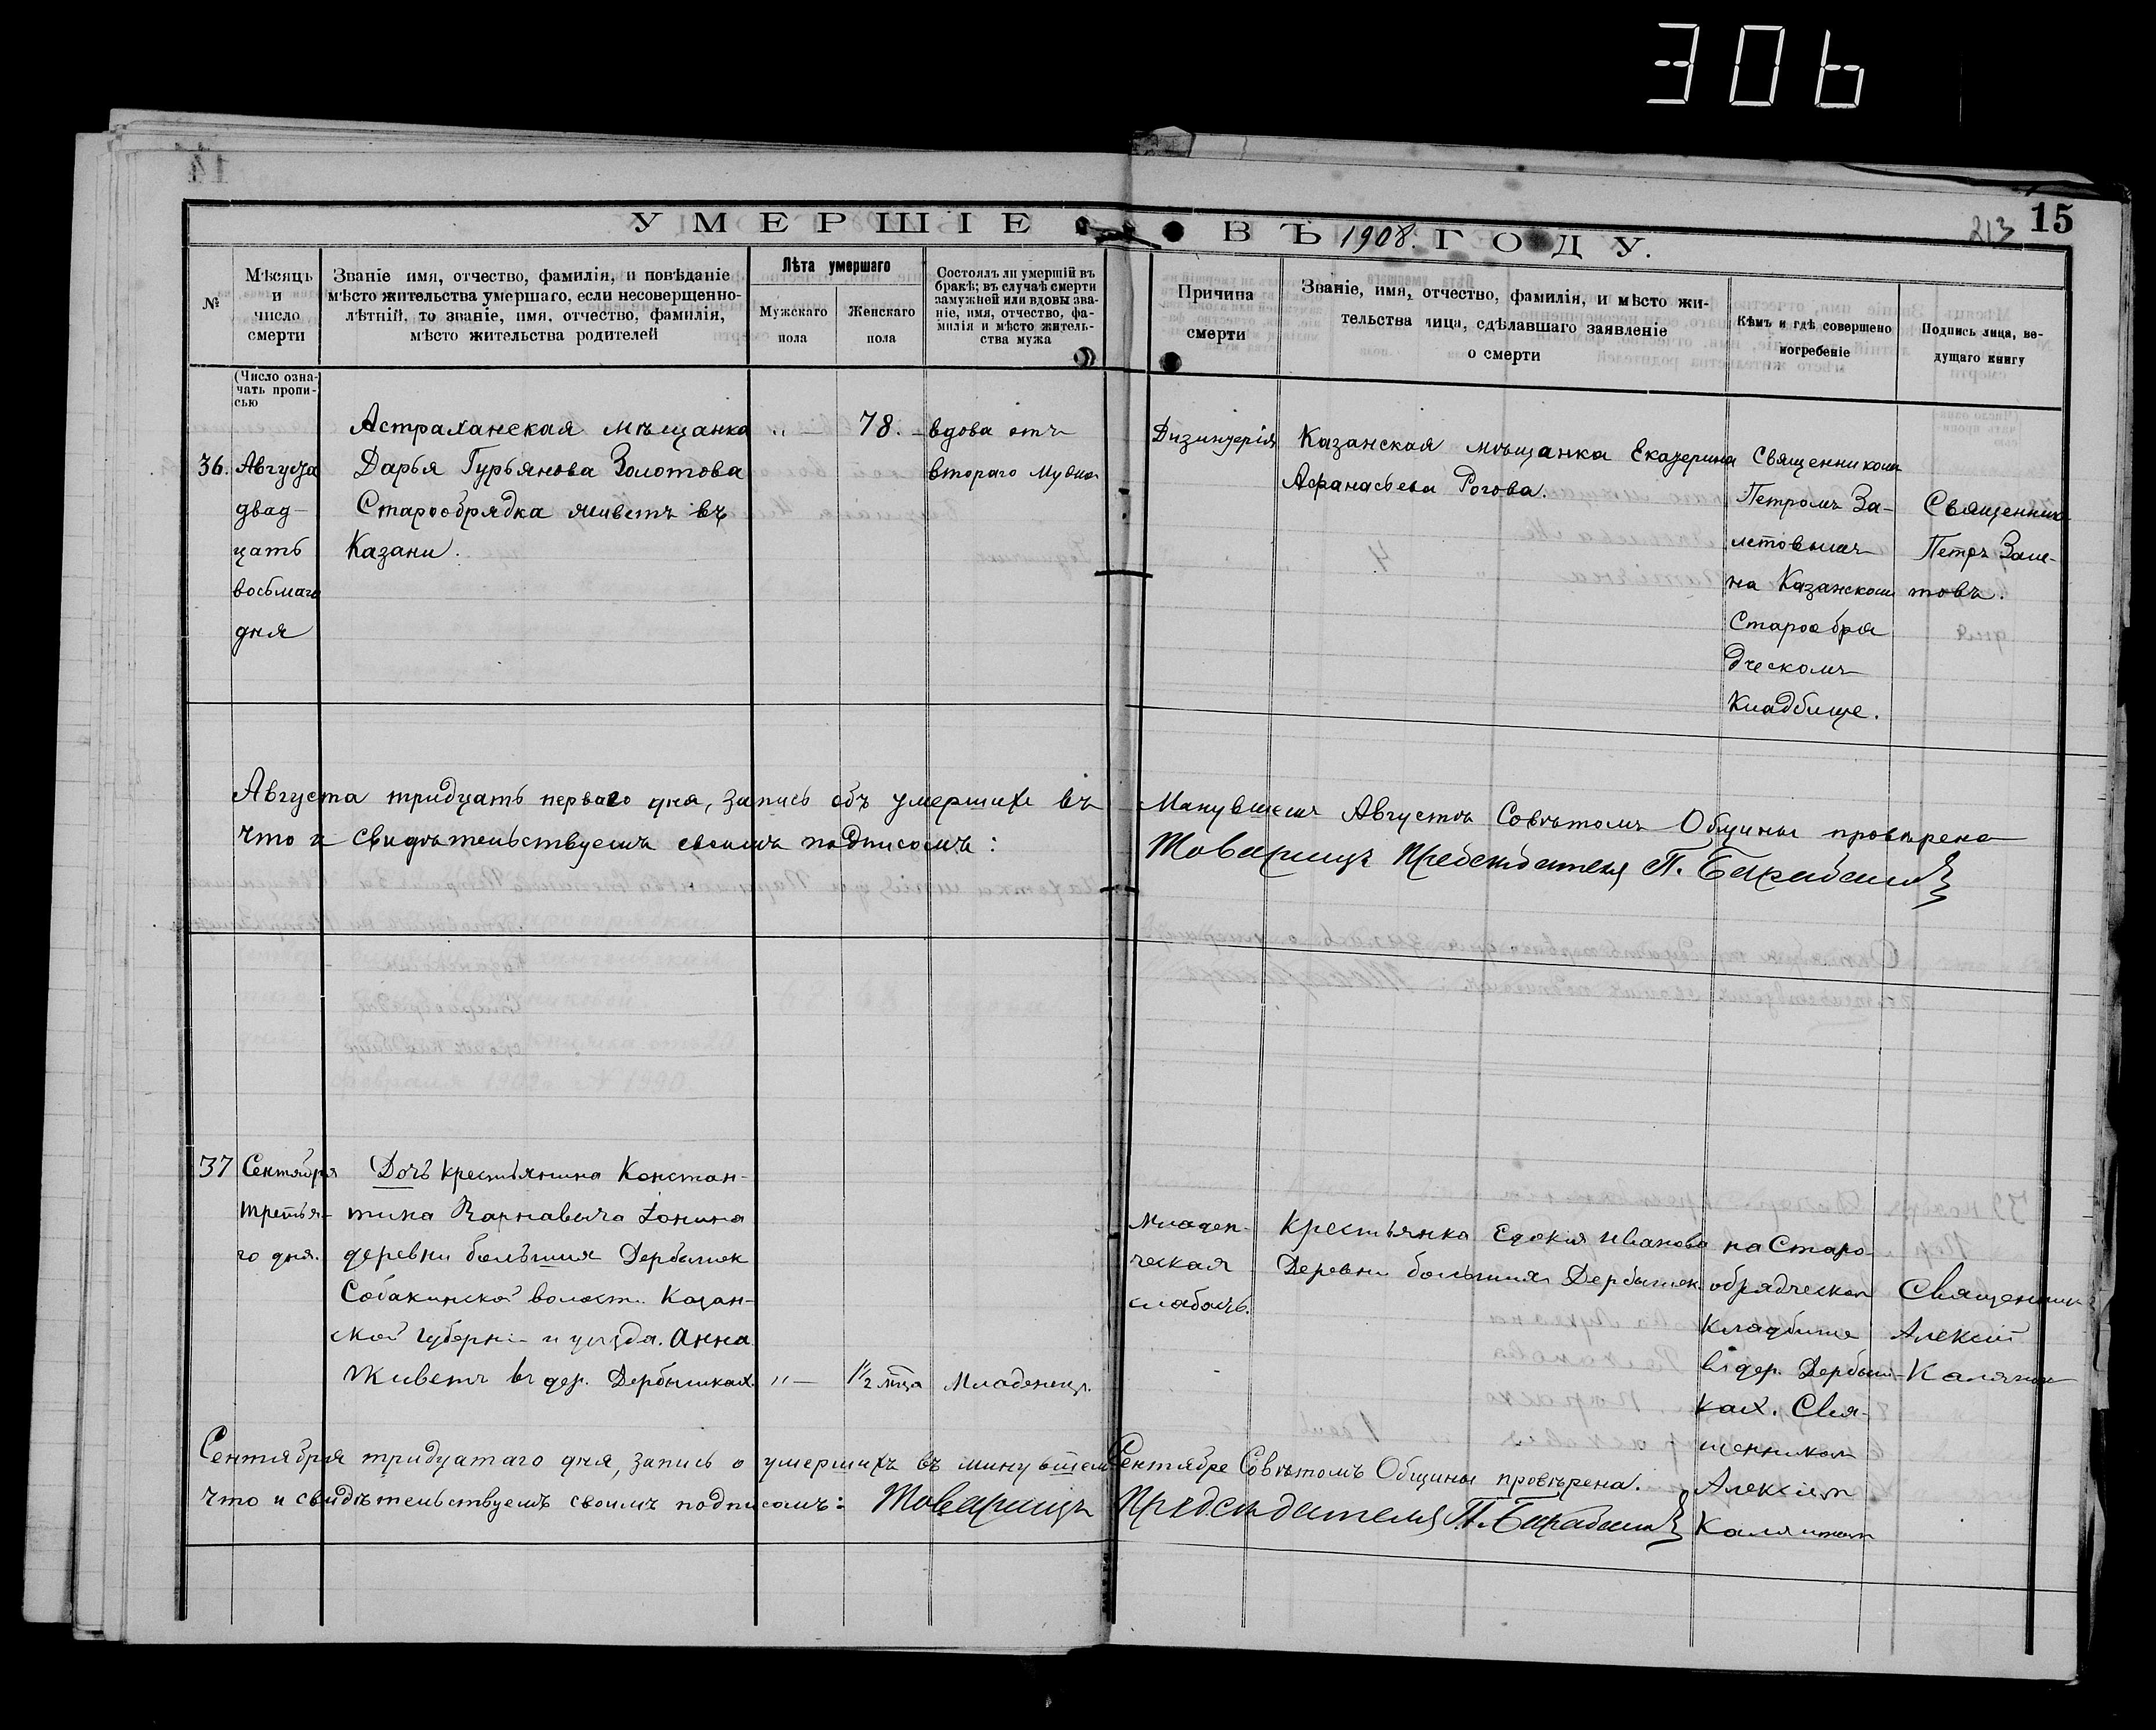 306
15
213
УМЕРШІЕ ВЪ 1908 ГОДУ.
№
Мѣсяцъ
и
число
смерти
Званіе имя, отчество, фамилія, и повѣданіе
мѣсто жительства умершаго, если несовершенно-
лѣтній, то званіе, имя, отчество, фамилія,
мѣсто жительства родителей
Лѣта умершаго
Мужскаго
пола
Женскаго
пола
Состоялъ ли умершій въ
бракѣ; въ случаѣ смерти
замужней или вдовы зва-
ніе, имя, отчество, фа-
милія и мѣсто житель-
ства мужа
Причина
смерти
Званіе, имя, отчество, фамилія, и мѣсто жи-
тельства лица, сдѣлавшаго заявленіе
о смерти
Кѣмъ и гдѣ совершено
погребеніе
Подпись лица, ве-
дущаго книгу
(Число озна-
чать пропи-
сью
36.
Августа
двад-
цать
восьмаго
дня
Астраханская мѣщанка
Дарья Гурьянова Золотова
Старообрядка живетъ въ
Казани.
" —
78. —
вдова отъ
втораго мужа
Дизинтерія
Казанская мѣщанка Екатерина
Афанасьева Рогова.
Священникомъ
Петромъ За-
летовымъ
на Казанскомъ
Старообря
дческомъ
Кладбище.
Священникъ
Петръ Зале-
товъ.
Августа тридцать перваго дня, запись объ умершихъ въ Минувшемъ Августѣ Совѣтомъ Общины провѣрена
что и свидѣтельствуемъ своимъ подписомъ: Товарищъ Председателя П. Барабанов
37
Сентября
третья-
го дня.
Дочь крестьянина Констан-
тина Варнавича Іонина
деревни большия Дербышек
Собакинской волости Казан-
ской губерніи и уѣзда. Анна
Живетъ въ дер. Дербышках.
" —
1½ мца
Младенецъ.
Младен-
ческая
слабость.
Крестьянка Едокия Иванова
Деревни большия Дербышек
на Старо
обрядческом
кладбище
въ дер. Дербыш-
ках. Свя-
щенником
Алексием
Калягином
Священникъ
Алексій
Калягин
Сентября тридцатаго дня, запись о умершихъ въ минувшем Сентябре Совѣтомъ Общины провѣрена.
что и свидѣтельствуемъ своимъ подписомъ: Товарищъ Председателя П. Барабанов